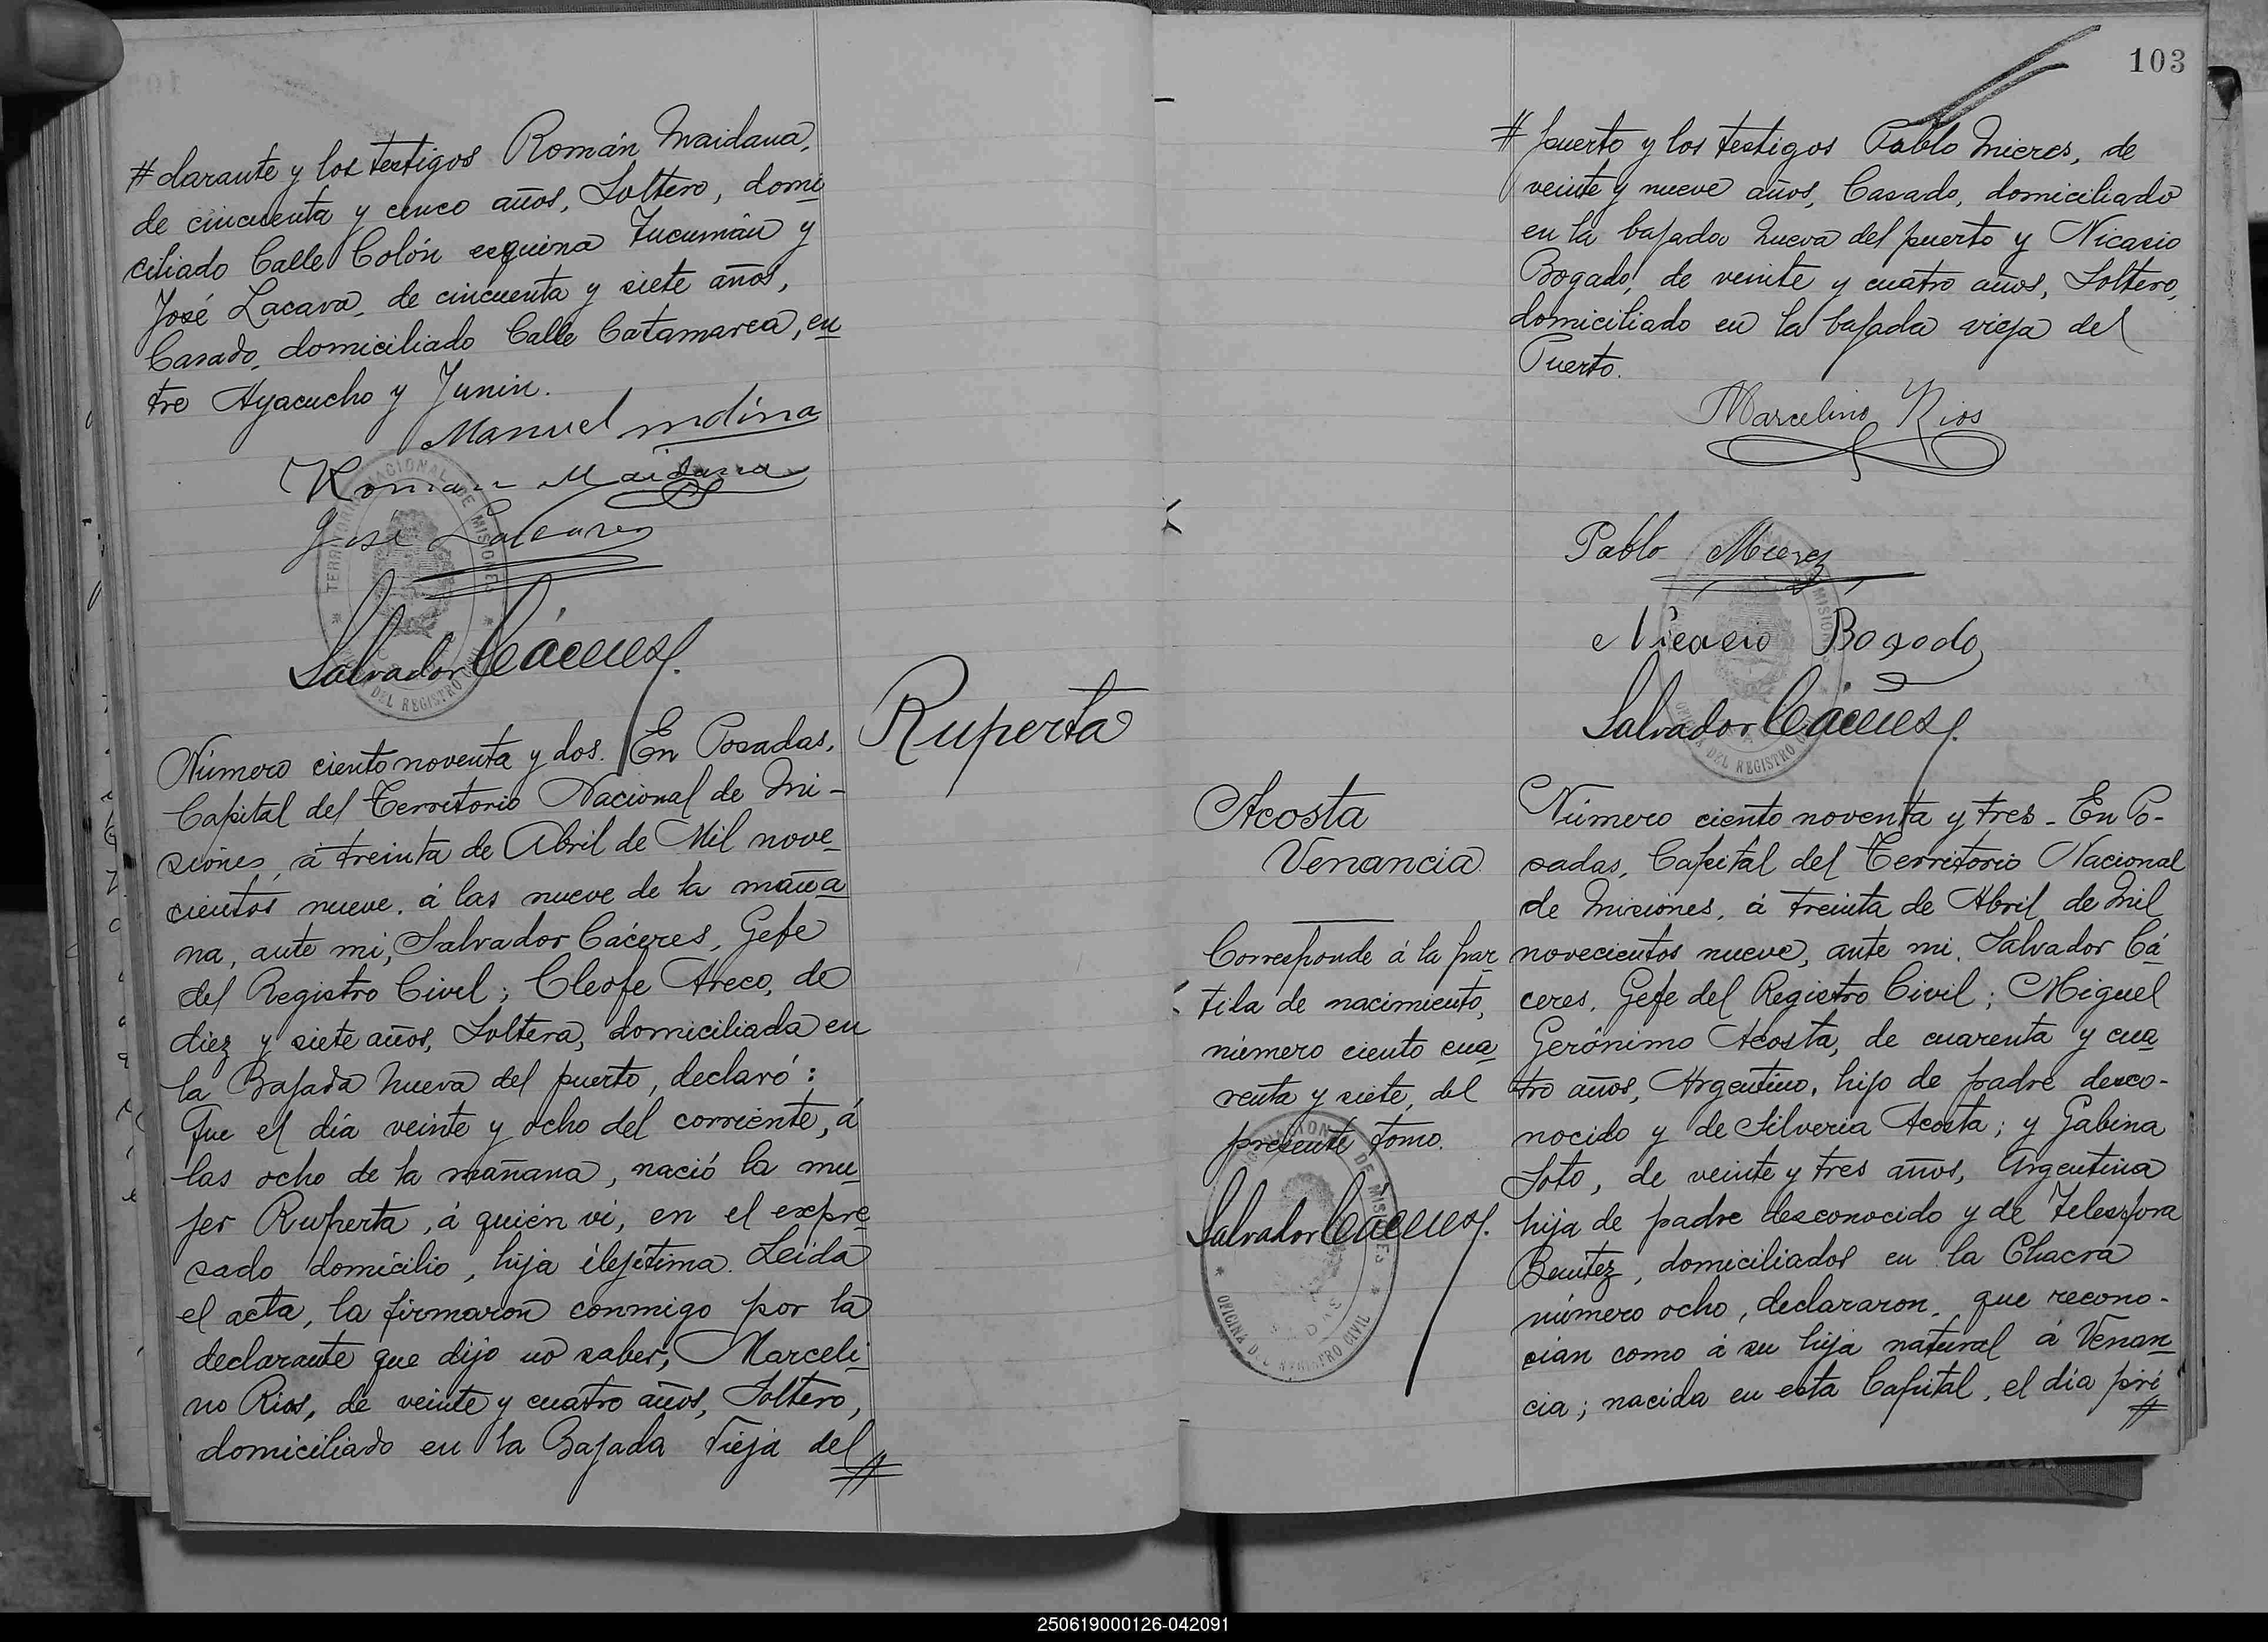 # darante y los testigos Román Maidana,
de cincuenta y cinco años, Soltero, domi
ciliado Calle Colón esquina Tucumán y
José Lacava, de cincuenta y siete años,
Casado, domiciliado Calle Catamarca, en
tre Ayacucho y Junin.
Manuel mdina
Roman Maidana
José Lacava
TERRITORIO NACIONAL DE MISIONES
DEL REGISTRO CIVIL
Salvador Cáceres
Número ciento noventa y dos. En Posadas,
Capital del Territorio Nacional de Mi-
siones, á treinta de Abril de Mil nove
cientos nueve, á las nueve de la maña
na, ante mi, Salvador Cáceres, Gefe
del Registro Civil; Cleofe Areco, de
diez y siete años, Soltera, domiciliada en
la Bajada Nueva del puerto, declaró:
Que el día veinte y ocho del corriente, á
las ocho de la mañana, nació la mu
jer Ruperta, á quién vi, en el expre
sado domicilio, hija ilejítima. Leida
el acta, la firmaron conmigo por la
declarante que dijo no saber, Marceli
no Rios, de veinte y cuatro años, Soltero,
domiciliado en la Bajada Vieja del #
Ruperta
103
# puerto y los testigos Pablo Mieres, de
veinte y nueve años, Casado, domiciliado
en la bajada nueva del puerto y Nicasio
Bogado, de veinte y cuatro años, Soltero,
domiciliado en la bajada vieja del
Puerto.
Marcelino Rios
Pablo Mieres
Nicasio Bogado
Salvador Cáceres
DEL REGISTRO CIVIL
Acosta
Venancia
Corresponde á la par
tida de nacimiento,
número ciento cua
renta y siete, del
presente tomo.
Salvador Cáceres
OFICINA DEL REGISTRO CIVIL
Número ciento noventa y tres - En Po-
sadas, Capital del Territorio Nacional
de Misiones, á treinta de Abril de Mil
novecientos nueve, ante mi, Salvador Cá
ceres, Gefe del Registro Civil; Miguel
Gerónimo Acosta, de cuarenta y cua
tro años, Argentino, hijo de padre desco-
nocido y de Silveria Acosta; y Gabina
Soto, de veinte y tres años, Argentina
hija de padre desconocido y de Telesfora
Benitez, domiciliados en la Chacra
número ocho, declararon, que recono-
cian como á su hija natural á Venan
cia; nacida en esta Capital, el día pri
#
250619000126-042091